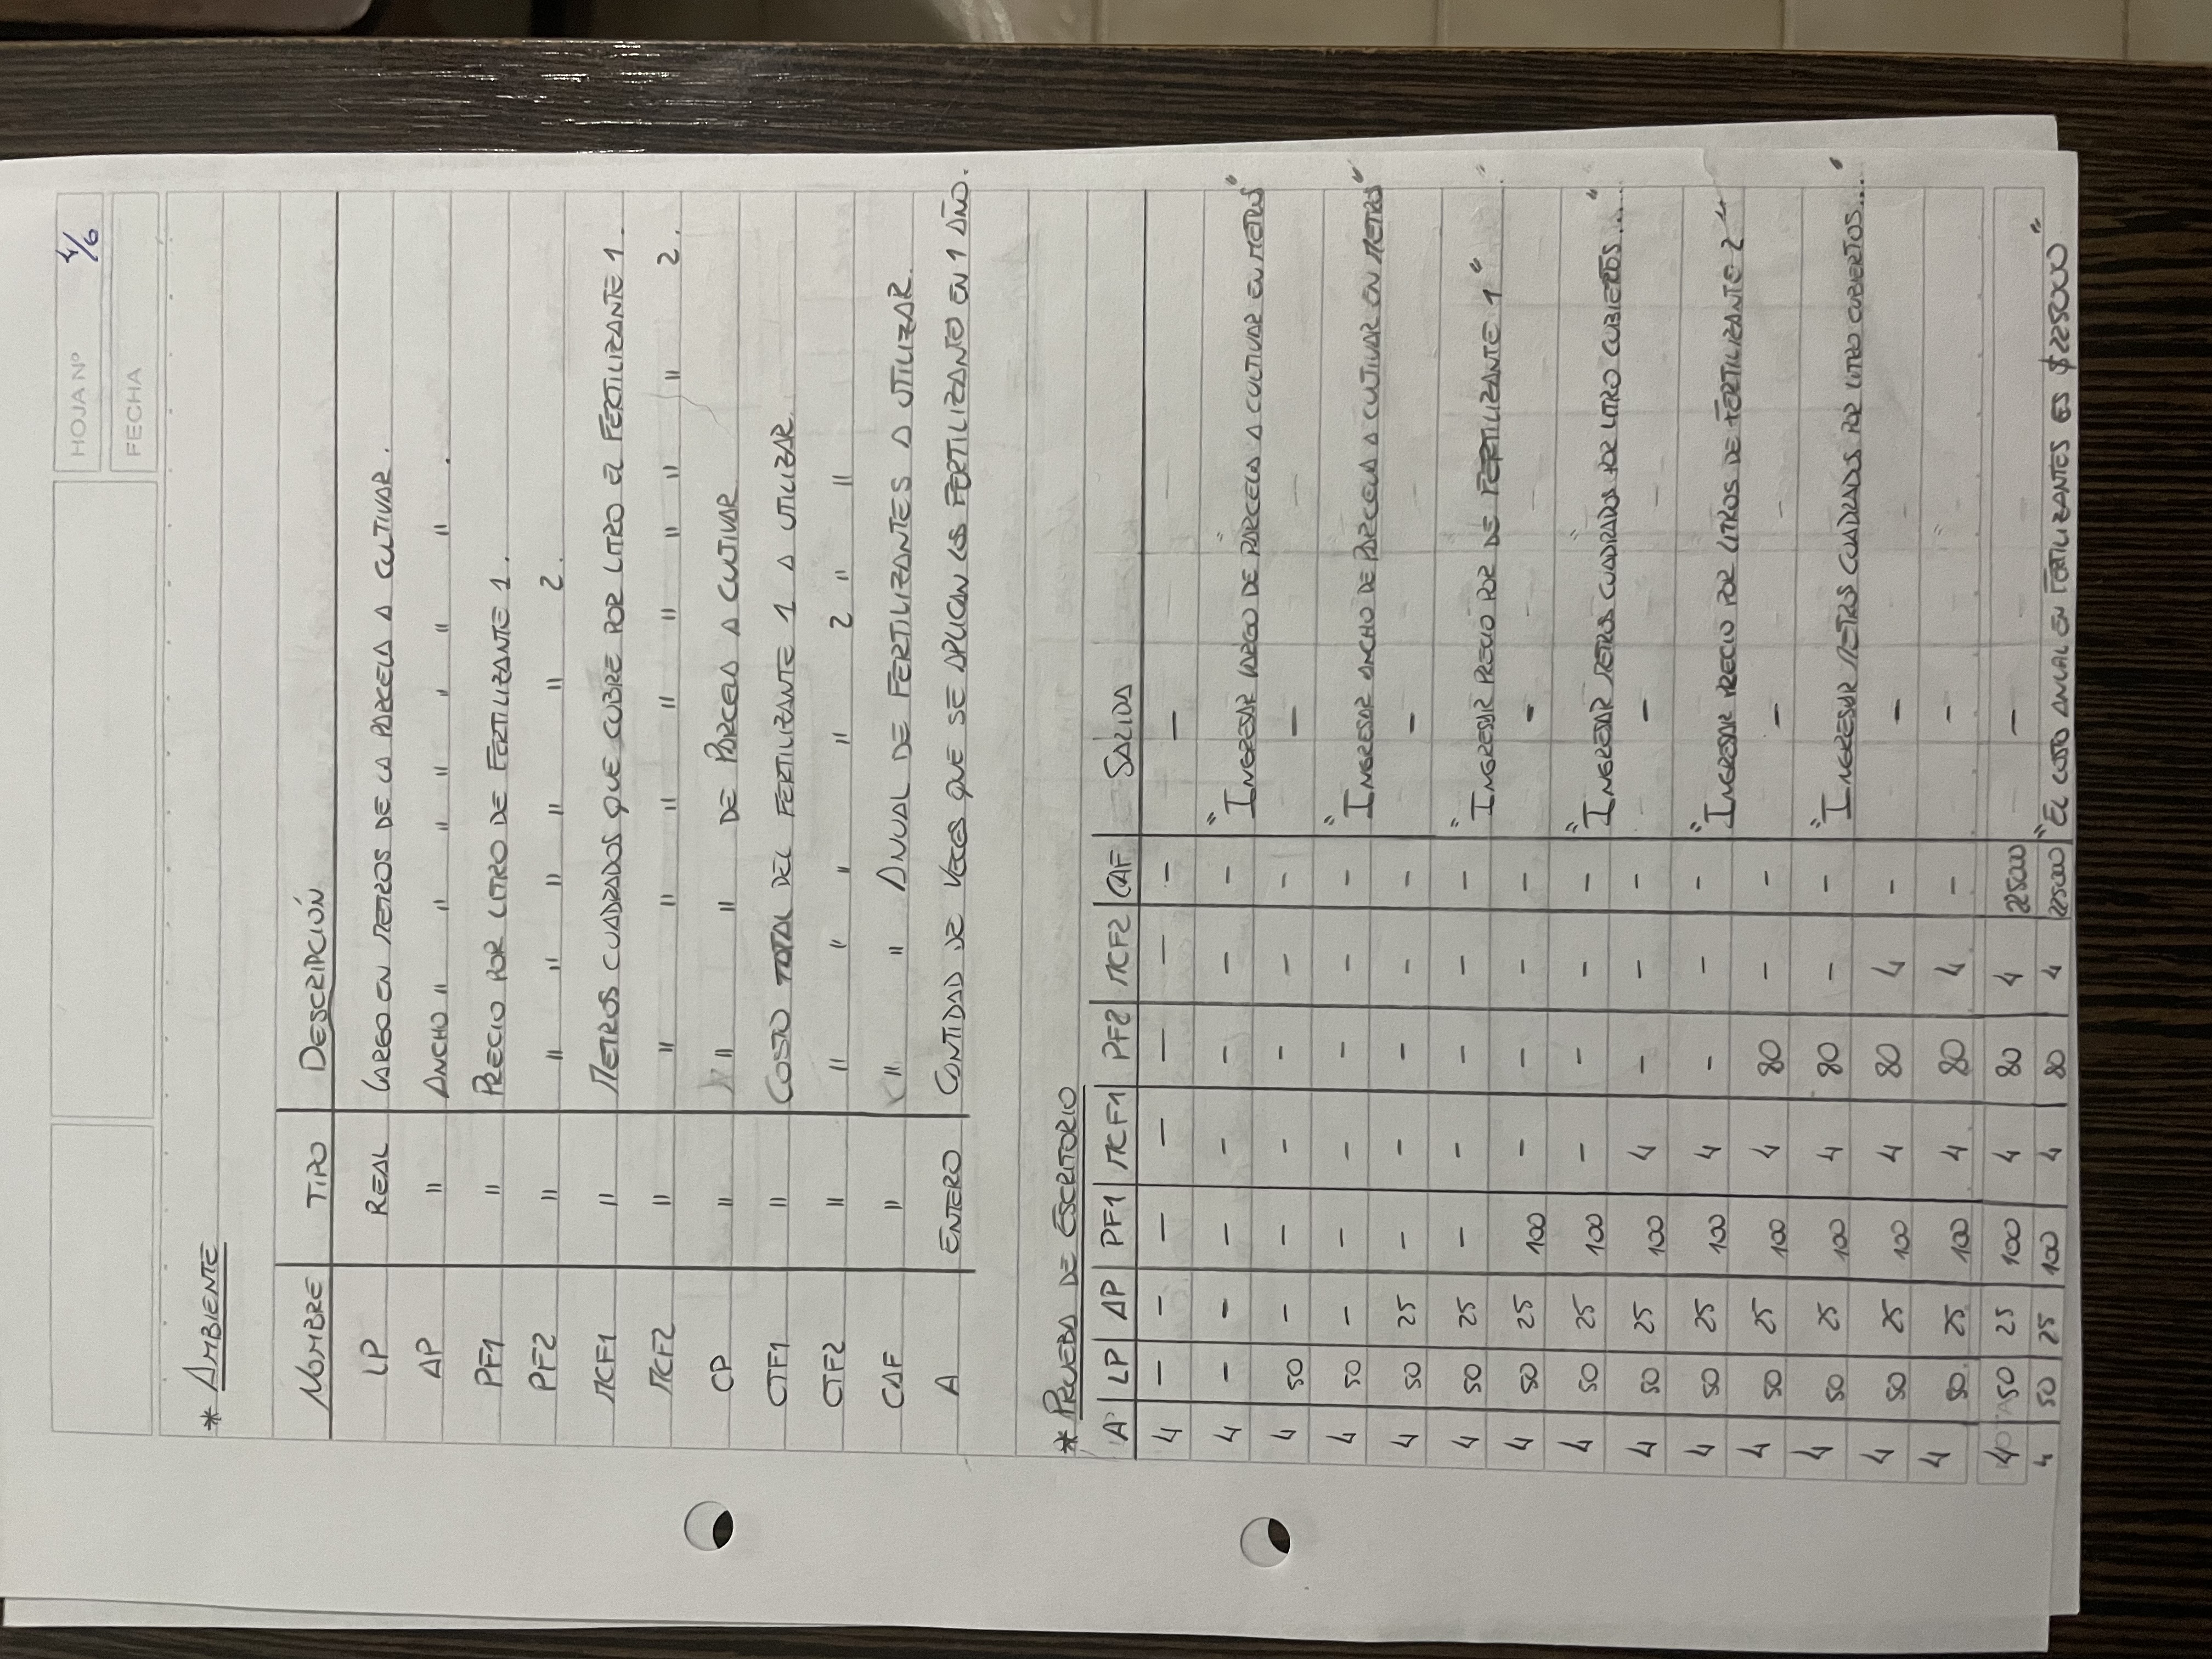 HOJA Nº 4/6
FECHA
* AMBIENTE
NOMBRE TIPO DESCRIPCIÓN
LP REAL LARGO EN METROS DE LA PARCELA A CULTIVAR .
AP " ANCHO " " " " " " " .
PF1 " PRECIO POR LITRO DE FERTILIZANTE 1 .
PF2 " " " " " " 2 .
MCF1 " METROS CUADRADOS QUE CUBRE POR LITRO EL FERTILIZANTE 1 .
MCF2 " " " " " " " " " 2 .
CP " " " DE PARCELA A CULTIVAR
CTF1 " COSTO TOTAL DEL FERTILIZANTE 1 A UTILIZAR
CTF2 " " " " " 2 " "
CAF " " " ANUAL DE FERTILIZANTES A UTILIZAR.
A ENTERO CANTIDAD DE VECES QUE SE APLICAN LOS FERTILIZANTE EN 1 AÑO.
* PRUEBA DE ESCRITORIO
A LP AP PF1 MCF1 PF2 MCF2 CAF SALIDA
4 – – – – – – – –
4 – – – – – – – "INGRESAR LARGO DE PARCELA A CULTIVAR EN METROS"
4 50 – – – – – – –
4 50 – – – – – – "INGRESAR ANCHO DE PARCELA A CULTIVAR EN METROS"
4 50 25 – – – – – –
4 50 25 – – – – – "INGRESAR PRECIO POR DE FERTILIZANTE 1"
4 50 25 100 – – – – –
4 50 25 100 – – – – "INGRESAR METROS CUADRADOS POR LITRO CUBIERTOS...."
4 50 25 100 4 – – – –
4 50 25 100 4 – – – "INGRESAR PRECIO POR LITROS DE FERTILIZANTE 2"
4 50 25 100 4 80 – – –
4 50 25 100 4 80 – – "INGRESAR METROS CUADRADOS POR LITRO CUBIERTOS..."
4 50 25 100 4 80 4 – –
4 50 25 100 4 80 4 – –
4 50 25 100 4 80 4 225000 –
4 50 25 100 4 80 4 225000 "EL COSTO ANUAL EN FERTILIZANTES ES $225000"